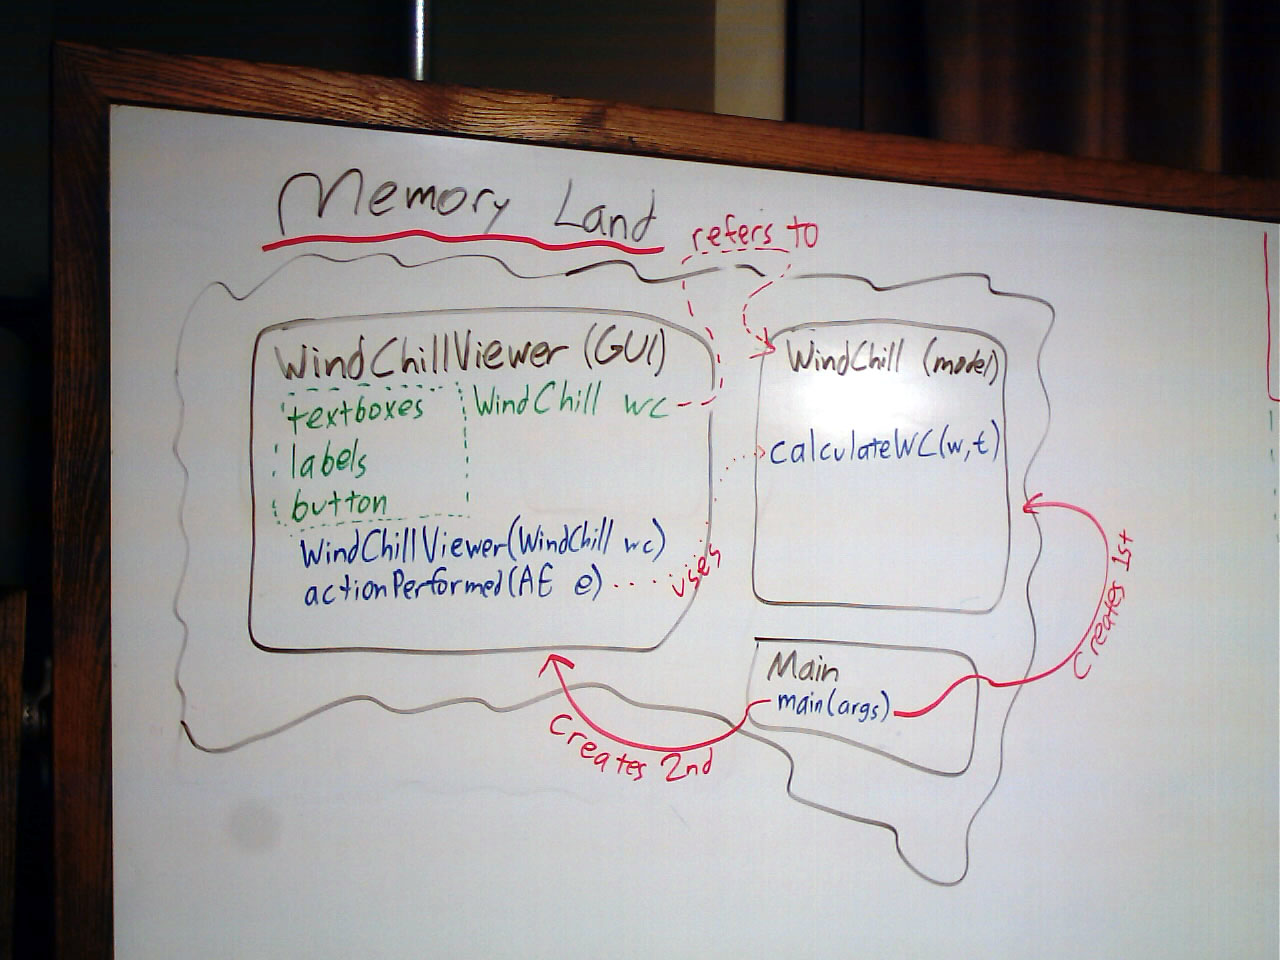 Memory Land
refers to
WindChillViewer (GUI)
textboxes
labels
button
WindChill wc
WindChillViewer(WindChill wc)
actionPerformed(AE e)
uses
WindChill (model)
calculateWC(w,t)
Creates 1st
Main
main(args)
Creates 2nd